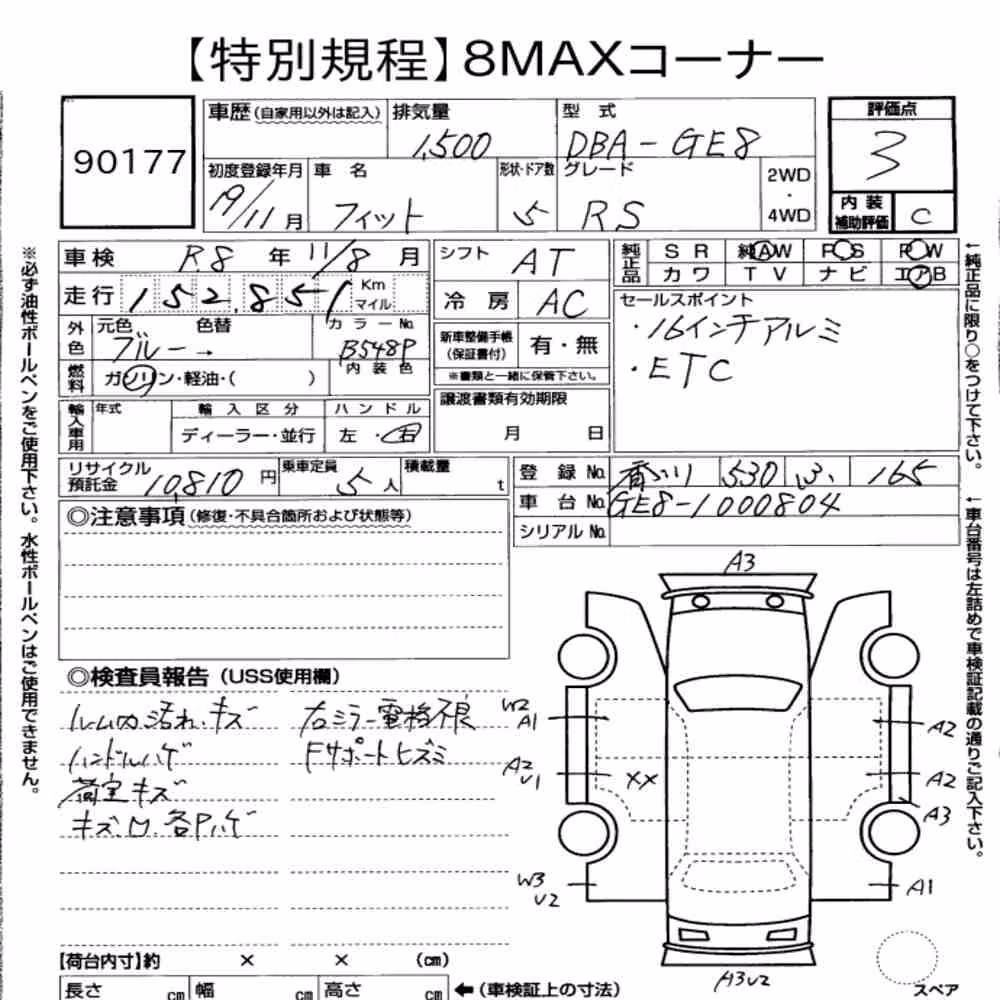 【特別規程】8MAXコーナー
90177
車歴(自家用以外は記入)
排気量
1,500
型式
DBA-GE8
評価点
3
初度登録年月
19/11月
車名
フィット
形状・ドア数
5
グレード
RS
2WD
・
4WD
内装
補助評価
C
車検
R.8年11/8月
シフト
AT
純正品
SR
純AW
PS
PW
カワ
TV
ナビ
エアB
走行
152,851
Km
マイル
冷房
AC
セールスポイント
・16インチアルミ
・ETC
外色
元色
ブルー→
色替
カラーNo.
B548P
内装色
新車整備手帳
(保証書付)
有・無
※書類と一緒に保管下さい。
燃料
ガソリン・軽油・( )
輸入車用
年式
輸入区分
ハンドル
ディーラー・並行
左・右
譲渡書類有効期限
月 日
リサイクル
預託金
10,810円
乗車定員
5人
積載量
t
登録No.
530
165
車台No.
GE8-1000804
シリアルNo.
◎注意事項(修復・不具合箇所および状態等)
◎検査員報告(USS使用欄)
ルーム内汚れ・キズ
ハンドルハゲ
荷室キズ
キズ、凹、各Pハゲ
右ミラー電格不良
Fサポートヒズミ
A3
W2
A1
A2
U1
XX
W3
U2
A2
A2
A3
A1
A3U2
スペア
【荷台内寸】約 × × (cm)
長さ cm
幅 cm
高さ cm
←(車検証上の寸法)
※必ず油性ボールペンをご使用下さい。水性ボールペンはご使用できません。
←純正品に限り○をつけて下さい。
←車台番号は左詰めで車検証記載の通りご記入下さい。